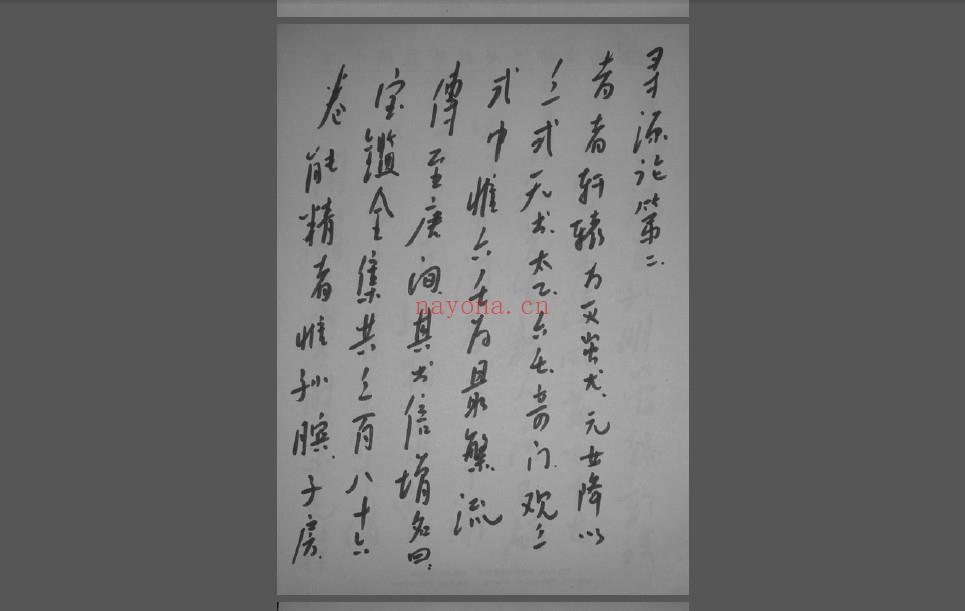 寻源论第二.
昔者轩辕为灭蚩尤.元女降以
三式天书.太乙.六壬.奇门.观三
式中惟六壬为最繁流
傳至唐间.其书倍增名曰:
宝鑑全集共三百八十六
卷能精者惟孙膑.子房.
nayona.cn